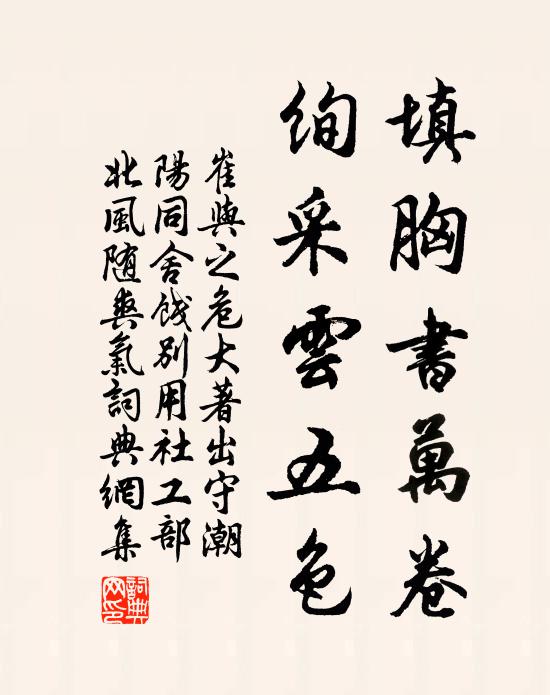 填胸書萬卷
絢采雲五色
崔與之危大著出守潮
陽同舍餞別用社工部
北風随爽氣詞典網集
詞典
网印